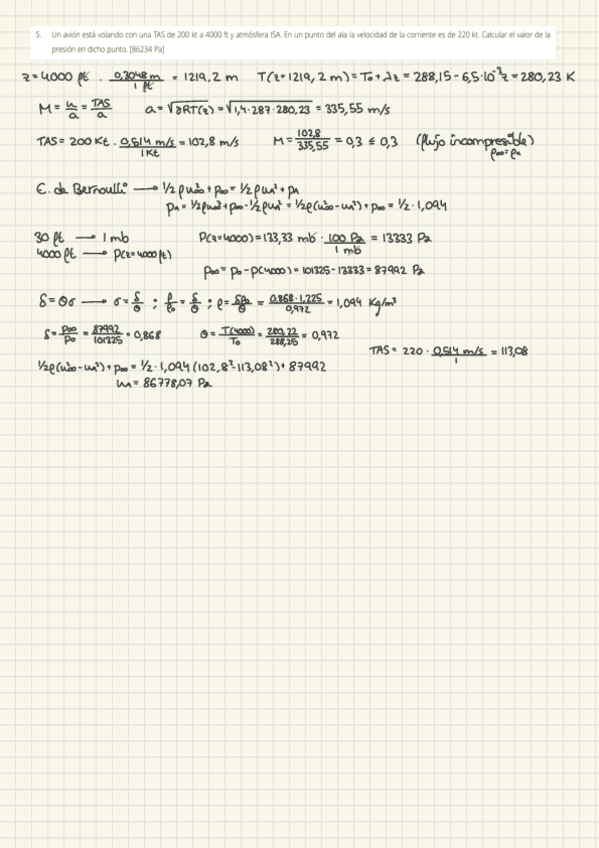 5. Un avión está volando con una TAS de 200 kt a 4000 ft y atmósfera ISA. En un punto del ala la velocidad de la corriente es de 220 kt. Calcular el valor de la
presión en dicho punto. [86234 Pa]
z = 4000 ft · 0,3048 m / 1 ft = 1219,2 m T(z=1219,2 m) = T₀ + λz = 288,15 - 6,5·10⁻³z = 280,23 K
M = u/a = TAS/a a = √γRT(z) = √1,4·287·280,23 = 335,55 m/s
TAS = 200 Kt · 0,514 m/s / 1 Kt = 102,8 m/s M = 102,8 / 335,55 = 0,3 ≤ 0,3 (flujo incompresible)
ρ∞ = ρₐ
E. de Bernoulli → 1/2 ρu∞² + p∞ = 1/2 ρuₐ² + pₐ
pₐ = 1/2ρu∞² + p∞ - 1/2 ρuₐ² = 1/2ρ(u∞² - uₐ²) + p∞ = 1/2 · 1,094
30 ft → 1 mb P(z=4000) = 133,33 mb · 100 Pa / 1 mb = 13333 Pa
4000 ft → P(z=4000 ft)
p∞ = p₀ - p(4000) = 101325 - 13333 = 87992 Pa
δ = θσ → σ = δ/θ ; ρ/ρ₀ = δ/θ ; ρ = δρ₀/θ = 0,868·1,225 / 0,972 = 1,094 Kg/m³
δ = p∞/p₀ = 87992/101325 = 0,868 θ = T(4000)/T₀ = 280,22/288,25 = 0,972
TAS = 220 · 0,514 m/s / 1 = 113,08
1/2ρ(u∞² - uₐ²) + p∞ = 1/2 · 1,094 (102,8² - 113,08²) + 87992
uₐ = 86778,07 Pa